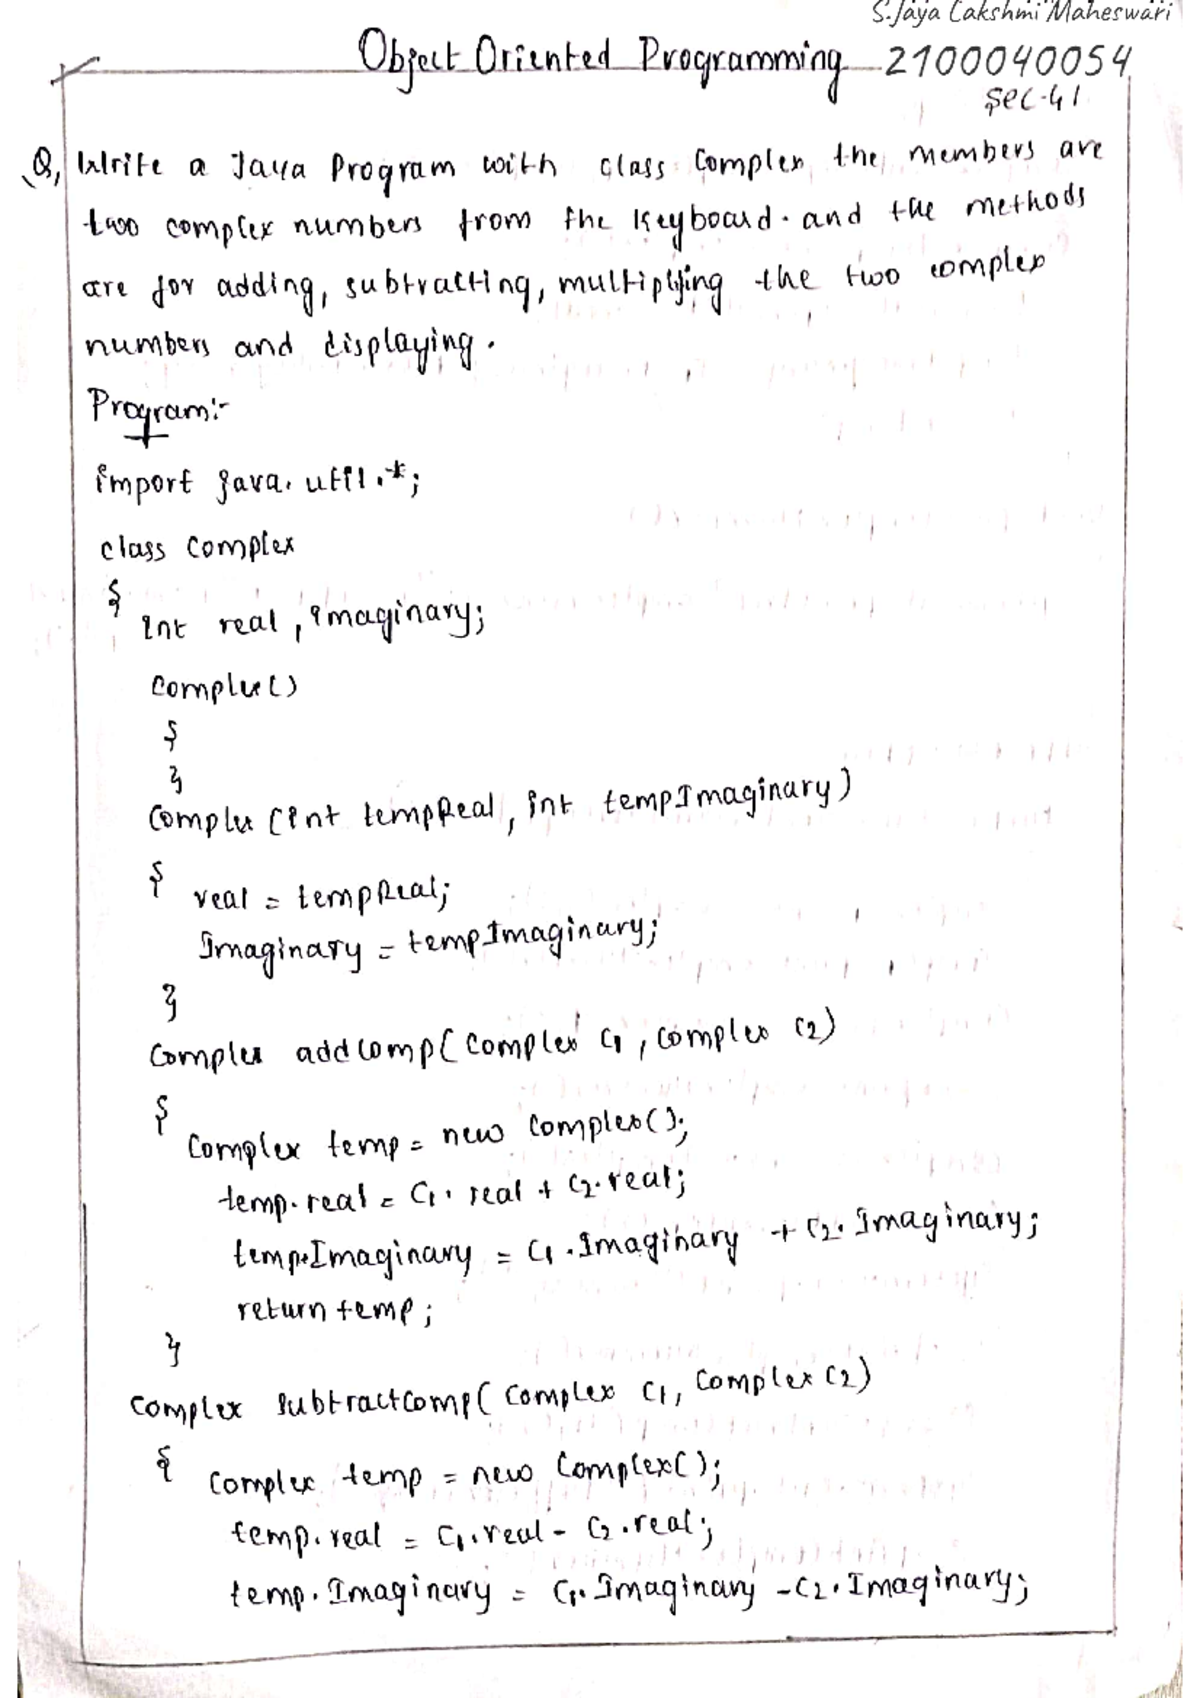 S.Jaya Lakshmi Maheswari
Object Oriented Programming 2100040054
Sec-41
Q, Write a Java Program with class Complex the members are
two complex numbers from the Keyboard. and the methods
are for adding, subtracting, multiplying the two complex
numbers and displaying.
Program:-
import java.util.*;
class Complex
{
int real, imaginary;
Complex()
{
}
Complex (int tempReal, int tempImaginary)
{
real = tempReal;
Imaginary = tempImaginary;
}
Complex addComp( Complex C1, Complex C2)
{
Complex temp = new Complex();
temp.real = C1.real + C2.real;
temp.Imaginary = C1.Imaginary + C2.Imaginary;
return temp;
}
Complex SubtractComp( Complex C1, Complex C2)
{
Complex temp = new Complex();
temp.real = C1.real - C2.real;
temp.Imaginary = C1.Imaginary - C2.Imaginary;